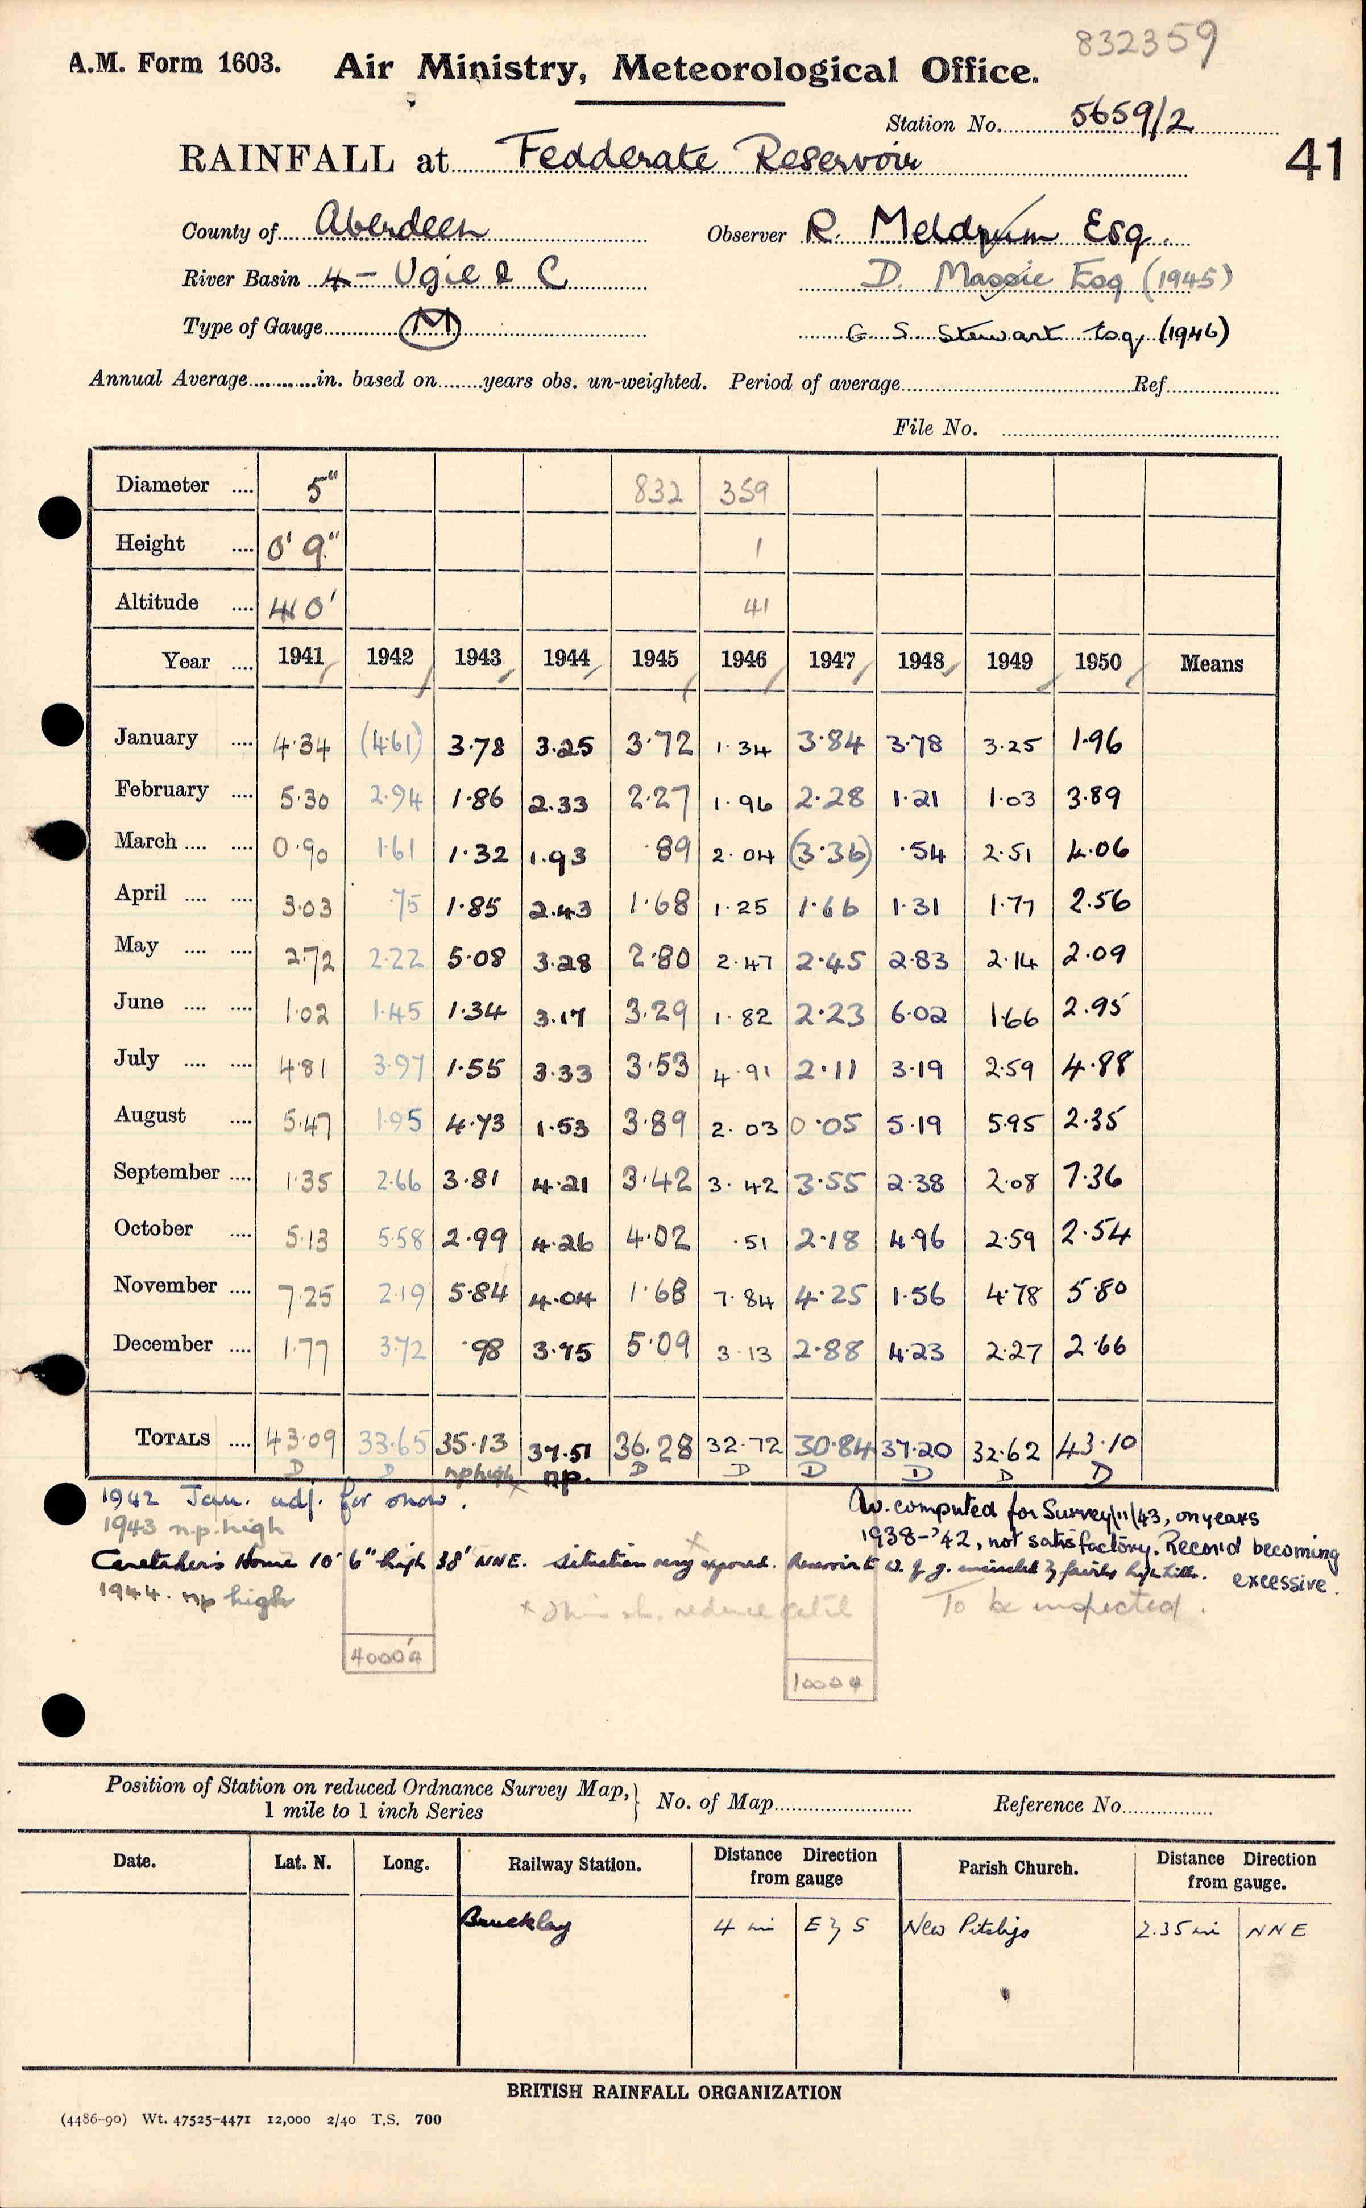 832359
A.M. Form 1603. Air Ministry, Meteorological Office.
Station No. 5659/2
RAINFALL at Fedderate Reservoir 41
County of Aberdeen Observer R. Meldrum Esq.
River Basin 4 - Ugie & C D. Massie Esq (1945)
Type of Gauge M G S Stewart Esq, (1946)
Annual Average in. based on years obs. un-weighted. Period of average Ref
File No.
Diameter .... 5" 832 359
Height .... 0' 9" 1
Altitude .... 410' 41
Year .... 1941 1942 1943 1944 1945 1946 1947 1948 1949 1950 Means
January .... 4.34 (4.61) 3.78 3.25 3.72 1.34 3.84 3.78 3.25 1.96
February .... 5.30 2.94 1.86 2.33 2.27 1.96 2.28 1.21 1.03 3.89
March .... .... 0.90 1.61 1.32 1.93 .89 2.04 (3.36) .54 2.51 4.06
April .... .... 3.03 .75 1.85 2.43 1.68 1.25 1.66 1.31 1.77 2.56
May .... .... 2.72 2.22 5.08 3.28 2.80 2.47 2.45 2.83 2.14 2.09
June .... .... 1.02 1.45 1.34 3.17 3.29 1.82 2.23 6.02 1.66 2.95
July .... .... 4.81 3.97 1.55 3.33 3.53 4.91 2.11 3.19 2.59 4.88
August .... 5.47 1.95 4.73 1.53 3.89 2.03 0.05 5.19 5.95 2.35
September .... 1.35 2.66 3.81 4.21 3.42 3.42 3.55 2.38 2.08 7.36
October .... 5.13 5.58 2.99 4.26 4.02 .51 2.18 4.96 2.59 2.54
November .... 7.25 2.19 5.84 4.04 1.68 7.84 4.25 1.56 4.78 5.80
December .... 1.77 3.72 .98 3.75 5.09 3.13 2.88 4.23 2.27 2.66
TOTALS .... 43.09 33.65 35.13 37.51 36.28 32.72 30.84 37.20 32.62 43.10
D D np high np. D D D D D D
1942 Jan. adj. for snow.
1943 n.p. high
Av. computed for Survey/11/43, on years
1938-'42, not satisfactory. Record becoming
excessive.
Caretaker's House 10' 6" high 38' NNE. Situation very exposed. Reservoir E
1944. np high
To be inspected.
4000
1000
Position of Station on reduced Ordnance Survey Map,
1 mile to 1 inch Series
No. of Map Reference No.
Date. Lat. N. Long. Railway Station. Distance Direction from gauge Parish Church. Distance Direction from gauge.
Brucklay 4 mi E by S New Pitsligo 2.35 mi NNE
BRITISH RAINFALL ORGANIZATION
(4486-90) Wt. 47525-4471 12,000 2/40 T.S. 700